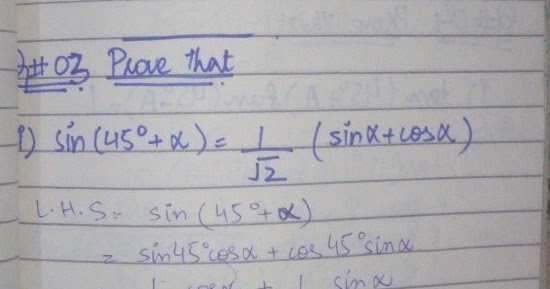 Q#03 Prove that
i) sin(45°+α) = 1/√2 (sinα+cosα)
L.H.S:- sin(45°+α)
= sin45°cosα + cos45°sinα
1 cosα + 1 sinα